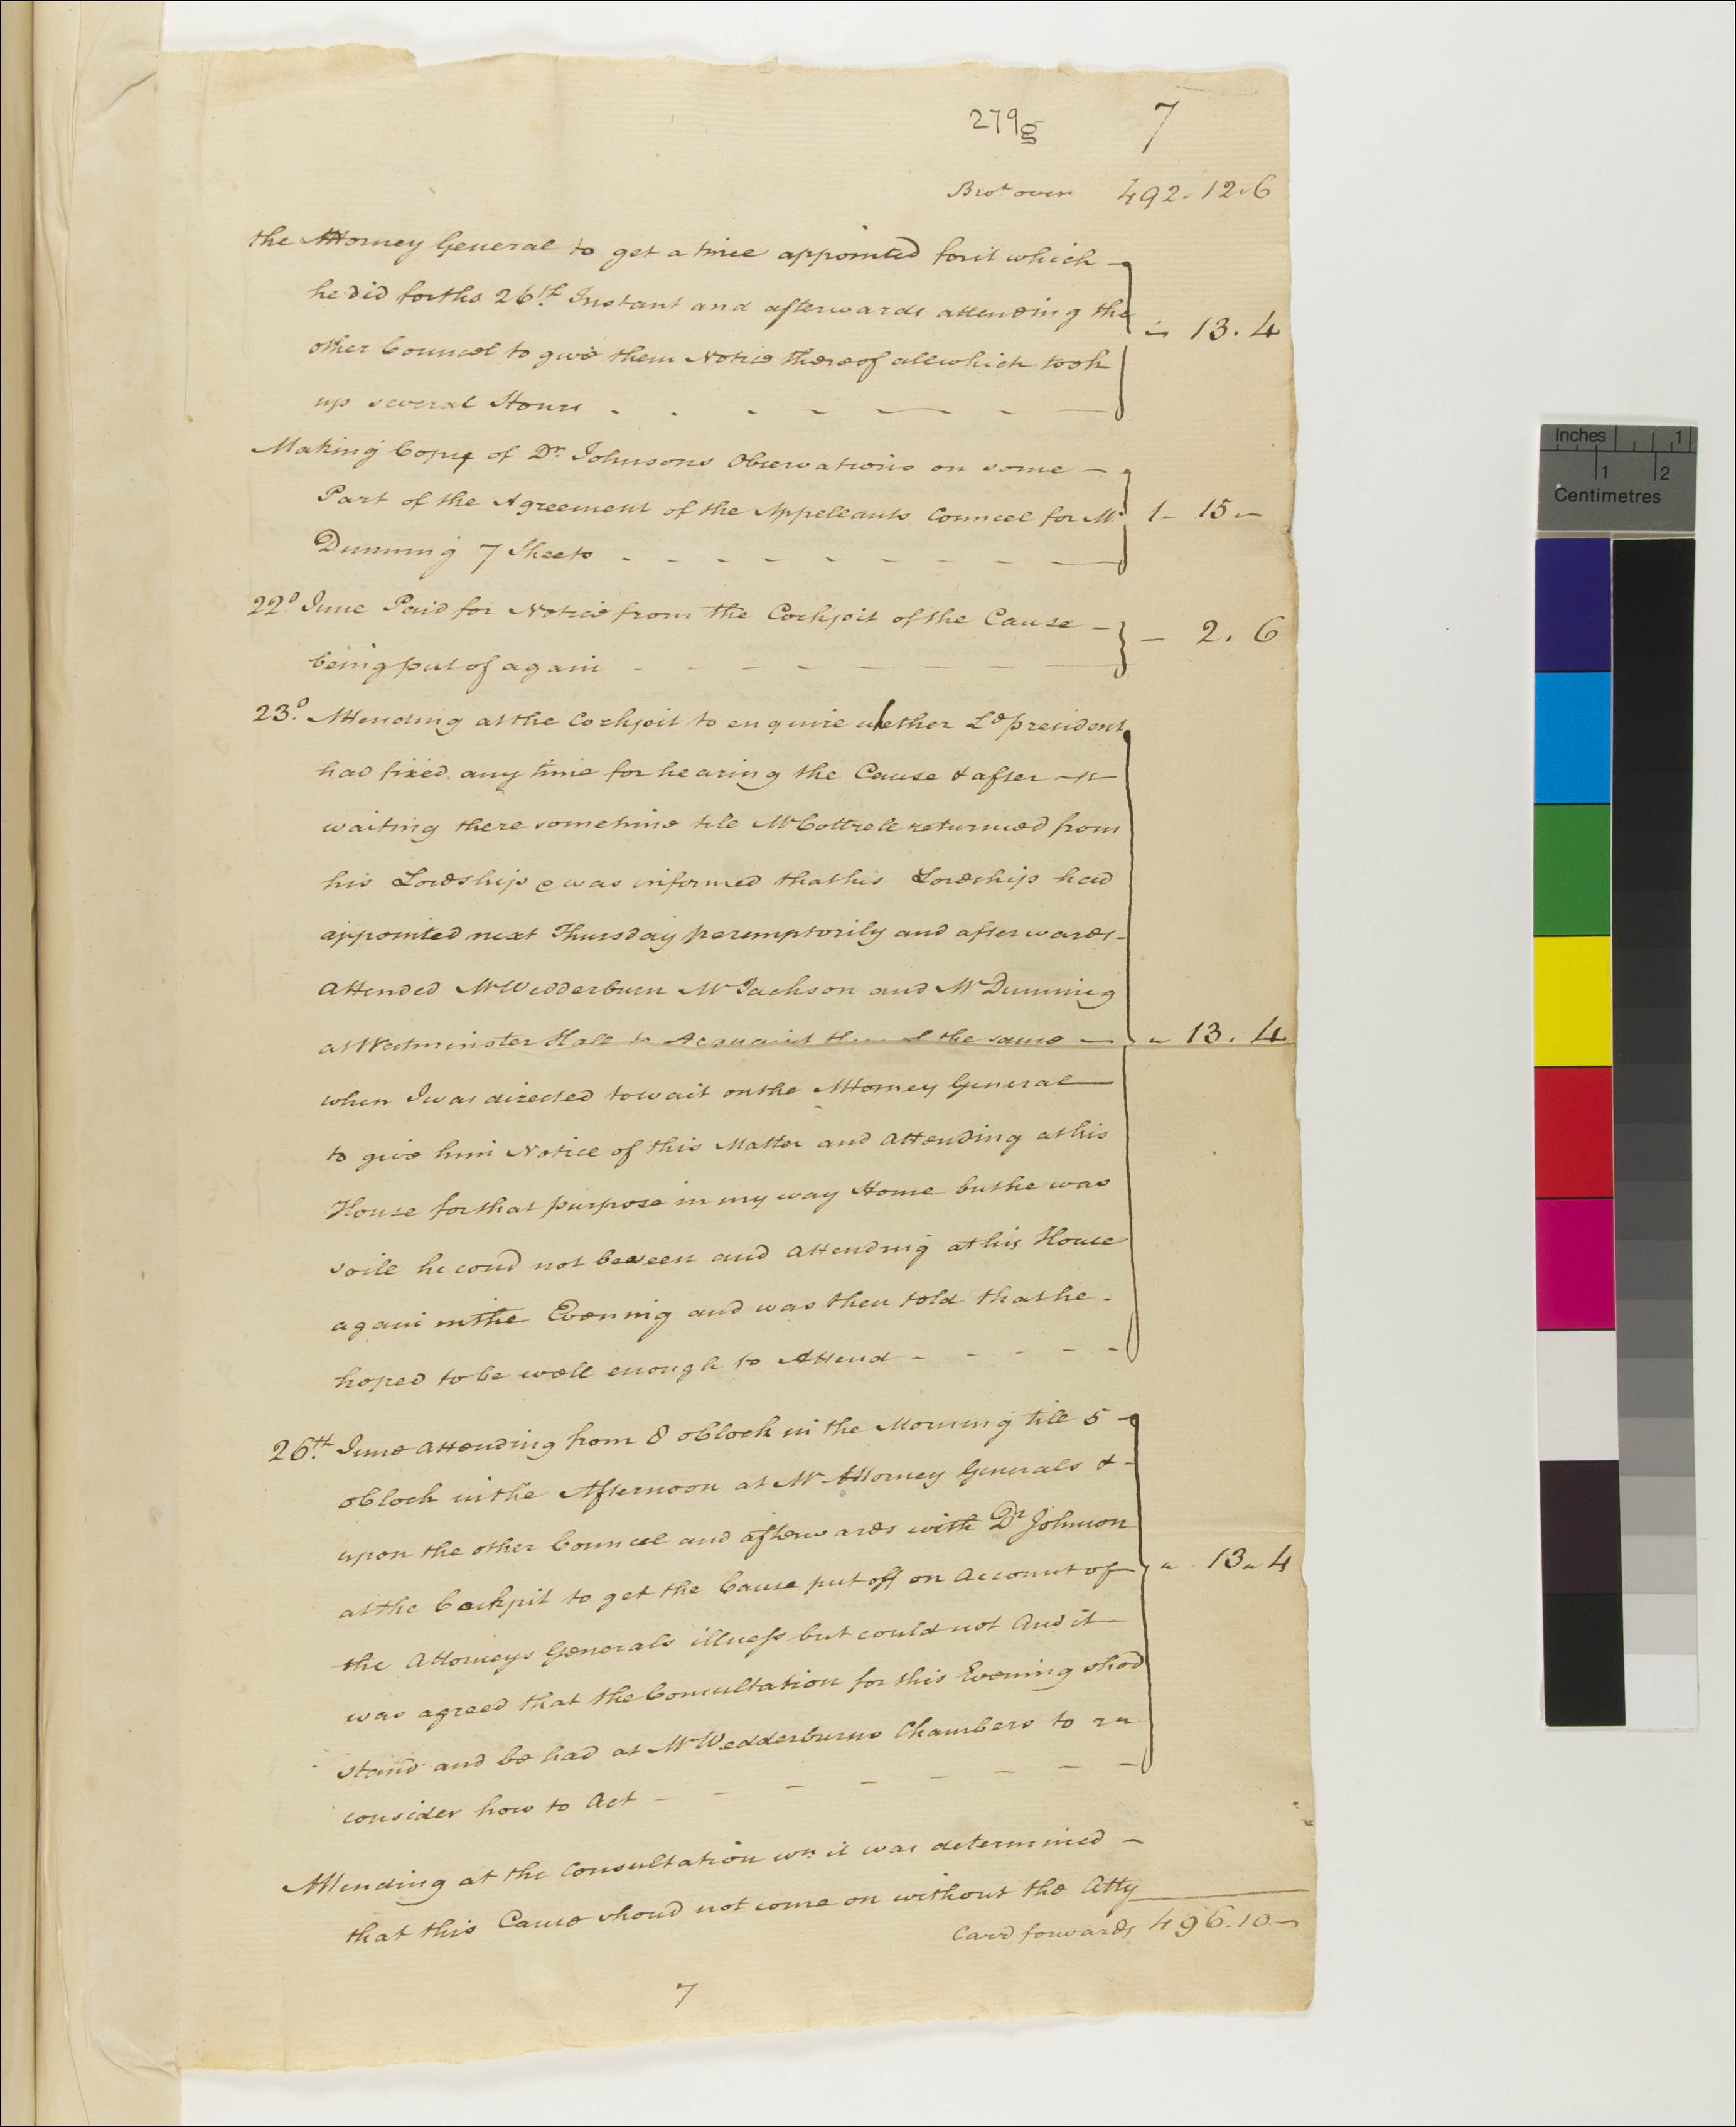 279g 7
Brot over 492.12.6
the Attorney General to get a time appointed for it which
he did for the 26th Instant and afterwards attending the
other Councel to give them Notice thereof all which took
up several Hours - 13.4
Making Copy of Dr Johnsons Observations on some
Part of the Agreement of the Appellants Councel for Mr
Dunning 7 Sheets 1 - 15 -
22d June Paid for Notice from the Cockpit of the Cause
being put of again - 2.6
23d Attending at the Cockpit to enquire whether Ld president
had fixed any time for hearing the Cause & after
waiting there sometime till Mr Cottrell returned from
his Lordship & was informed that his Lordship had
appointed next Thursday peremptorily and afterwards
attended Mr Wedderburn Mr Jackson and Mr Dunning
at Westminster Hall to Acquaint them of the same - 13.4
when I was directed to wait on the Attorney General
to give him Notice of this Matter and attending at his
House for that purpose in my way Home but he was
so ill he coud not be seen and attending at his House
again in the Evening and was then told that he
hoped to be well enough to Attend
26th June attending from 8 oClock in the Morning till 5
oClock in the Afternoon at Mr Attorney Generals &
upon the other Councel and afterwards with Dr Johnson
at the Cockpit to get the Cause put off on Account of - 13 - 4
the Attorneys Generals illness but could not And it
was agreed that the Consultation for this Evening shod
stand and be had at Mr Wedderburns Chambers to
consider how to Act
Attending at the Consultation wn it was determined
that this Cause shoud not come on without the Atty
Card forwards 496.10 -
7